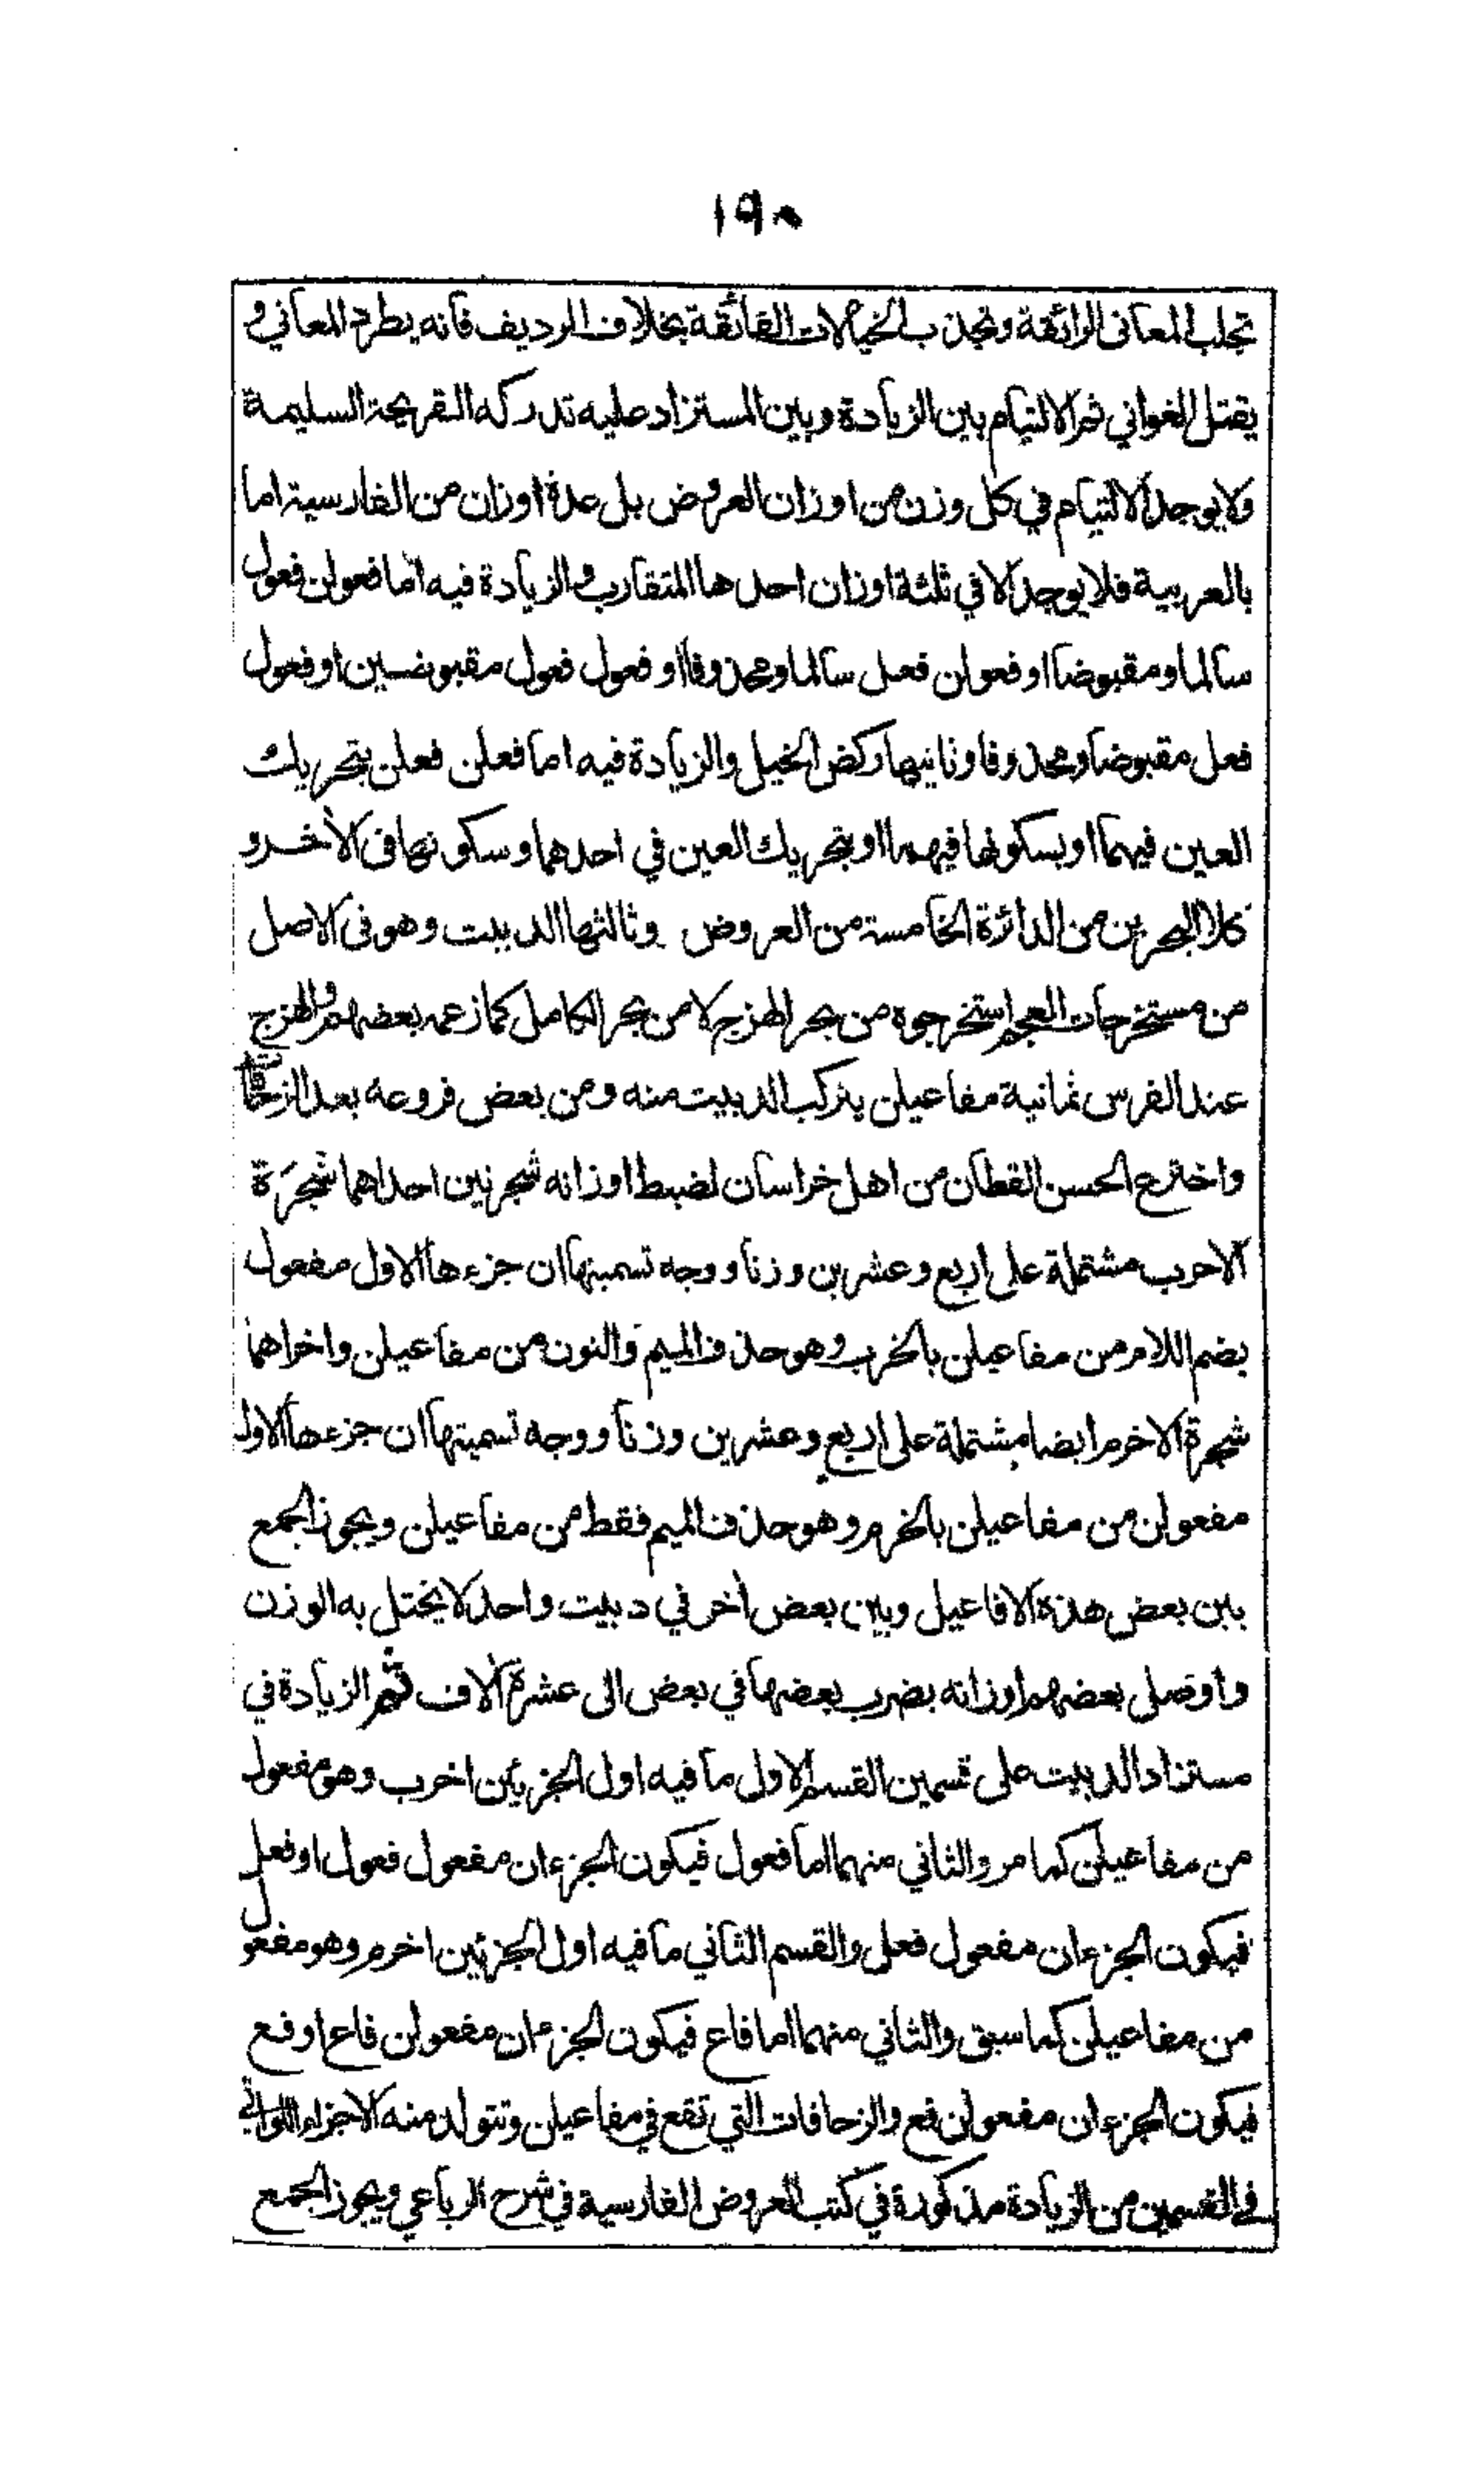 ١٩٠
تجلب المعاني الرائقة وتجذب الخيالات الفائقة بخلاف الرديف فانه يطرح المعاني و
يقتل الغواني ثم الالتيام بين الزيادة وبين المستزاد عليه تدركه القريحة السليمة
ولا يوجد الالتيام في كل وزن من اوزان العروض بل عدة اوزان من الفارسية اما
بالعربية فلا يوجد الا في ثلثة اوزان احدها المتقارب والزيادة فيه اما فعولن فعول
سالما ومقبوضا او فعولن فعل سالما ومحذوفا او فعول فعول مقبوضين او فعول
فعل مقبوضا ومحذوفا وثانيها ركض الخيل والزيادة فيه اما فعلن فعلن بتحريك
العين فيهما او بسكونها فيهما او بتحريك العين في احدهما وسكونها في الأخر و
كلا البحرين من الدائرة الخامسة من العروض وثالثها الدبيت وهو في الاصل
من مستخرجات العجم استخرجوه من بحر الهزج لا من بحر الكامل كما زعمه بعضهم والهزج
عند الفرس ثمانية مفاعيلن يتركب الدبيت منه ومن بعض فروعه بعد الزحافات
واخترع الحسن القطان من اهل خراسان لضبط اوزانه شجرتين احداهما شجرة
الاحرب مشتملة على اربع وعشرين وزنا ووجه تسميتها ان جزءها الاول مفعول
بضم اللام من مفاعيلن بالخرب وهو حذف الميم والنون من مفاعيلن واخراهما
شجرة الاخرم ايضا مشتملة على اربع وعشرين وزنا ووجه تسميتها ان جزءها الاول
مفعولن من مفاعيلن بالخرم وهو حذف الميم فقط من مفاعيلن ويجوز الجمع
بين بعض هذه الافاعيل وبين بعض أخر في دبيت واحد لا يختل به الوزن
واوصل بعضهم اوزانه بضرب بعضها في بعض الى عشرة ألاف ثم الزيادة في
مستزاد الدبيت على قسمين القسم الاول ما فيه اول الجزئين اخرب وهو مفعول
من مفاعيلن كما مر والثاني منهما اما فعول فيكون الجزءان مفعول فعول او فعل
فيكون الجزءان مفعول فعل والقسم الثاني ما فيه اول الجزئين اخرم وهو مفعول
من مفاعيلن كما سبق والثاني منهما اما فاع فيكون الجزءان مفعولن فاع او فع
فيكون الجزءان مفعولن فع والزحافات التي تقع في مفاعيلن وتتولد منه الاجزاء اللواتي
في القسمين من الزيادة مذكورة في كتب العروض الفارسية في شرح الرباعي ويجوز الجمع